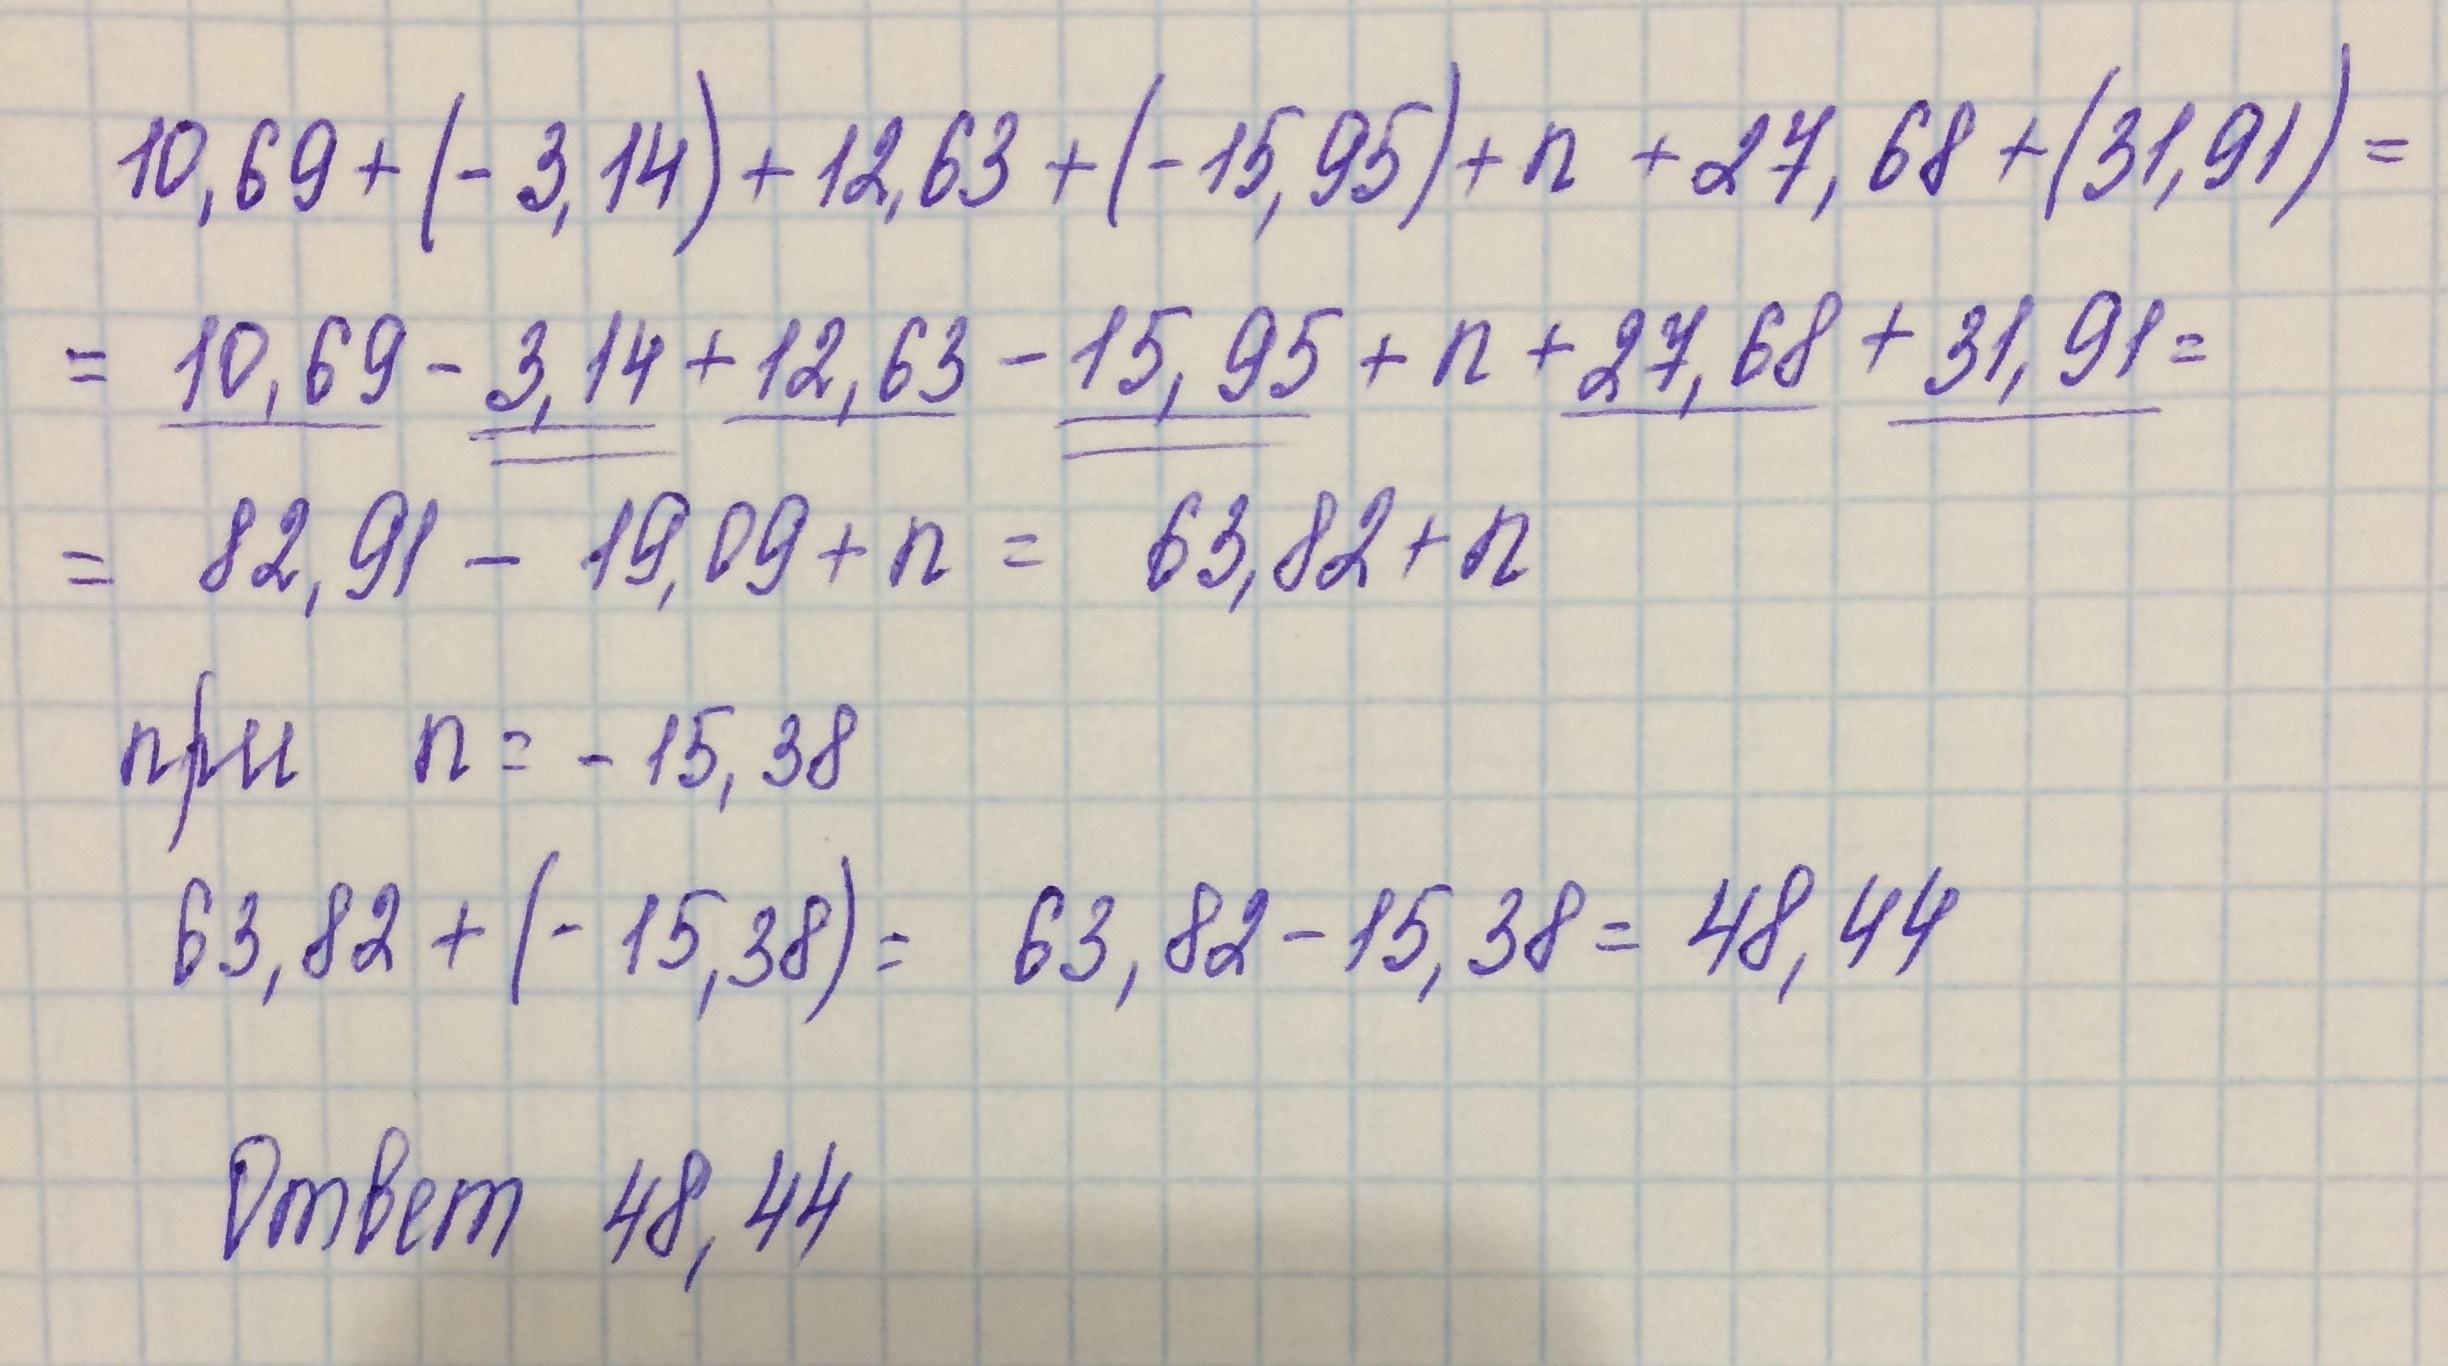 10,69+(-3,14)+12,63+(-15,95)+n+27,68+(31,91)=
=10,69-3,14+12,63-15,95+n+27,68+31,91=
=82,91-19,09+n=63,82+n
при n=-15,38
63,82+(-15,38)=63,82-15,38=48,44
Ответ 48,44